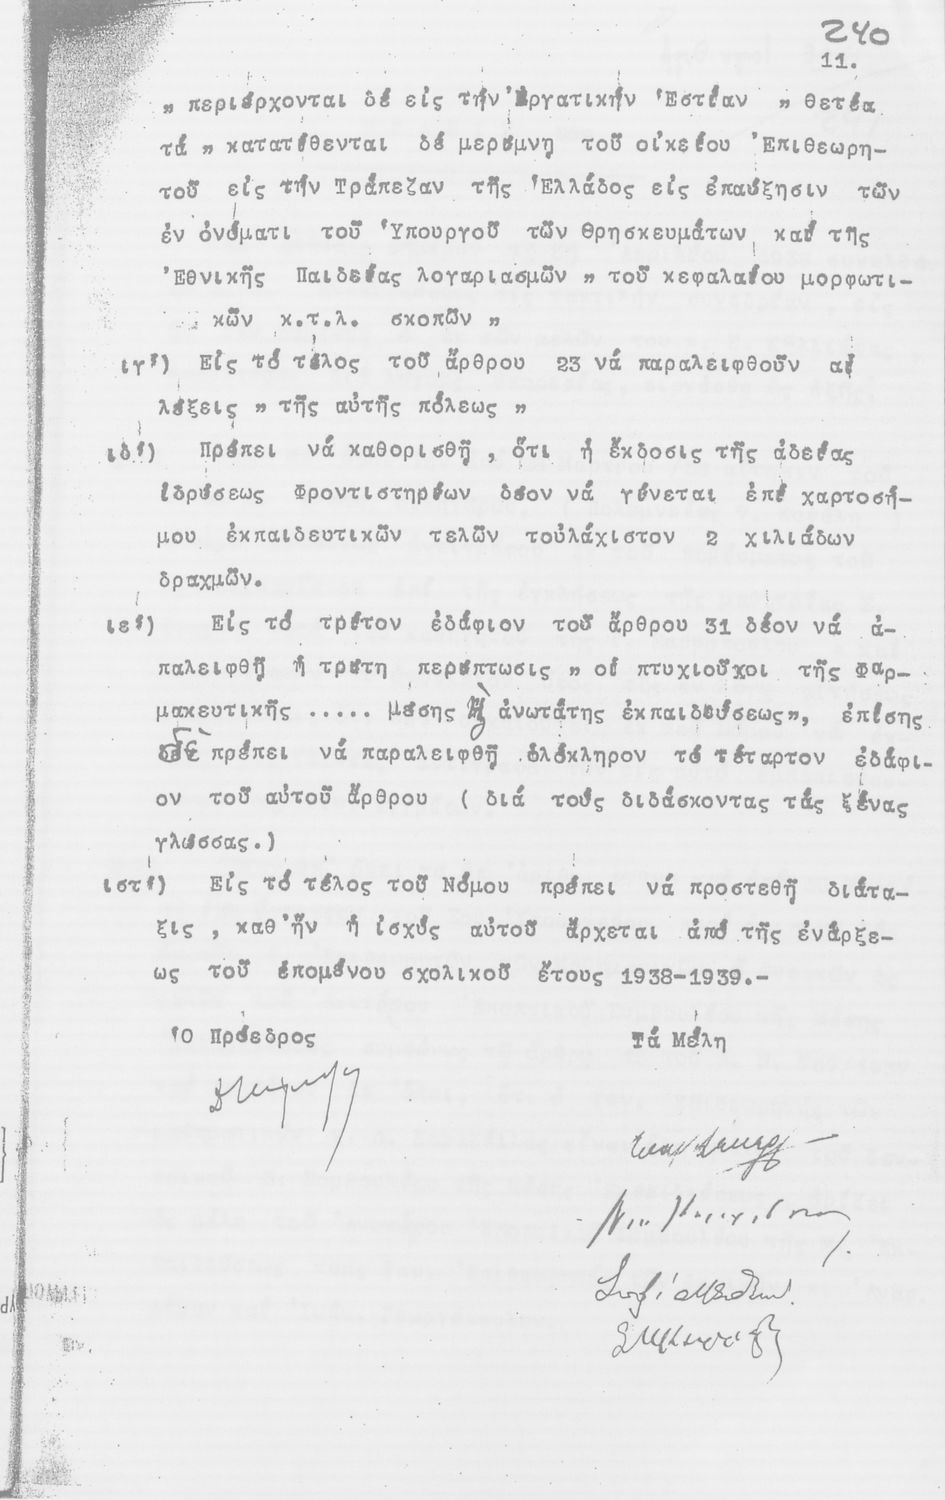 240
11.
„ περιέρχονται δέ εἰς τήν Ἐργατικήν Ἑστίαν „ θετέα
τά „ κατατίθενται δέ μερίμνῃ τοῦ οἰκείου Ἐπιθεωρη-
τοῦ εἰς τήν Τράπεζαν τῆς Ἑλλάδος εἰς ἐπαύξησιν τῶν
ἐν ὀνόματι τοῦ Ὑπουργοῦ τῶν Θρησκευμάτων καί τῆς
Ἐθνικῆς Παιδείας λογαριασμῶν „ τοῦ κεφαλαίου μορφωτι-
κῶν κ.τ.λ. σκοπῶν „
ιγ') Εἰς τό τέλος τοῦ ἄρθρου 23 νά παραλειφθοῦν αἱ
λέξεις „ τῆς αὐτῆς πόλεως „
ιδ') Πρέπει νά καθορισθῇ , ὅτι ἡ ἔκδοσις τῆς ἀδείας
ἱδρύσεως Φροντιστηρίων δέον νά γίνεται ἐπί χαρτοσή-
μου ἐκπαιδευτικῶν τελῶν τοὐλάχιστον 2 χιλιάδων
δραχμῶν.
ιε') Εἰς τό τρίτον ἐδάφιον τοῦ ἄρθρου 31 δέον νά ἀ-
παλειφθῇ ἡ τρίτη περίπτωσις „ οἱ πτυχιοῦχοι τῆς Φαρ-
μακευτικῆς ..... μέσης ἤ ἀνωτάτης ἐκπαιδεύσεως„, ἐπίσης
δέ πρέπει νά παραλειφθῇ ὁλόκληρον τό τέταρτον ἐδάφι-
ον τοῦ αὐτοῦ ἄρθρου ( διά τούς διδάσκοντας τάς ξένας
γλώσσας.)
ιστ') Εἰς τό τέλος τοῦ Νόμου πρέπει νά προστεθῇ διάτα-
ξις , καθ'ἥν ἡ ἰσχύς αὐτοῦ ἄρχεται ἀπό τῆς ἐνάρξε-
ως τοῦ ἑπομένου σχολικοῦ ἔτους 1938-1939.-
Ὁ Πρόεδρος Τά Μέλη